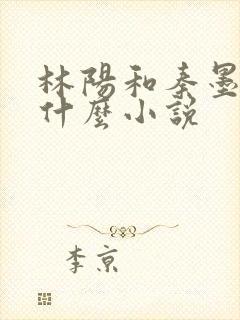 林陽和秦墨
什麼小説
李京